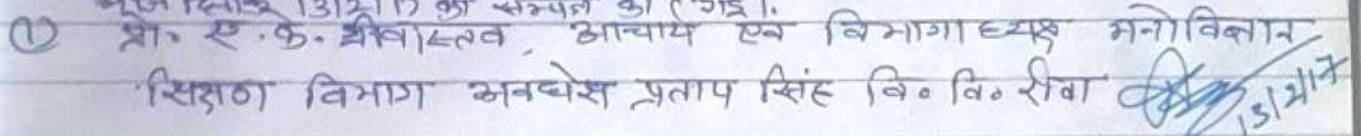 दिनांक 13/2/17 को सम्पन्न की गई।
① प्रो. ए.के. श्रीवास्तव, आचार्य एवं विभागाध्यक्ष मनोविज्ञान
शिक्षण विभाग अवधेश प्रताप सिंह वि० वि० रीवा 13/2/17